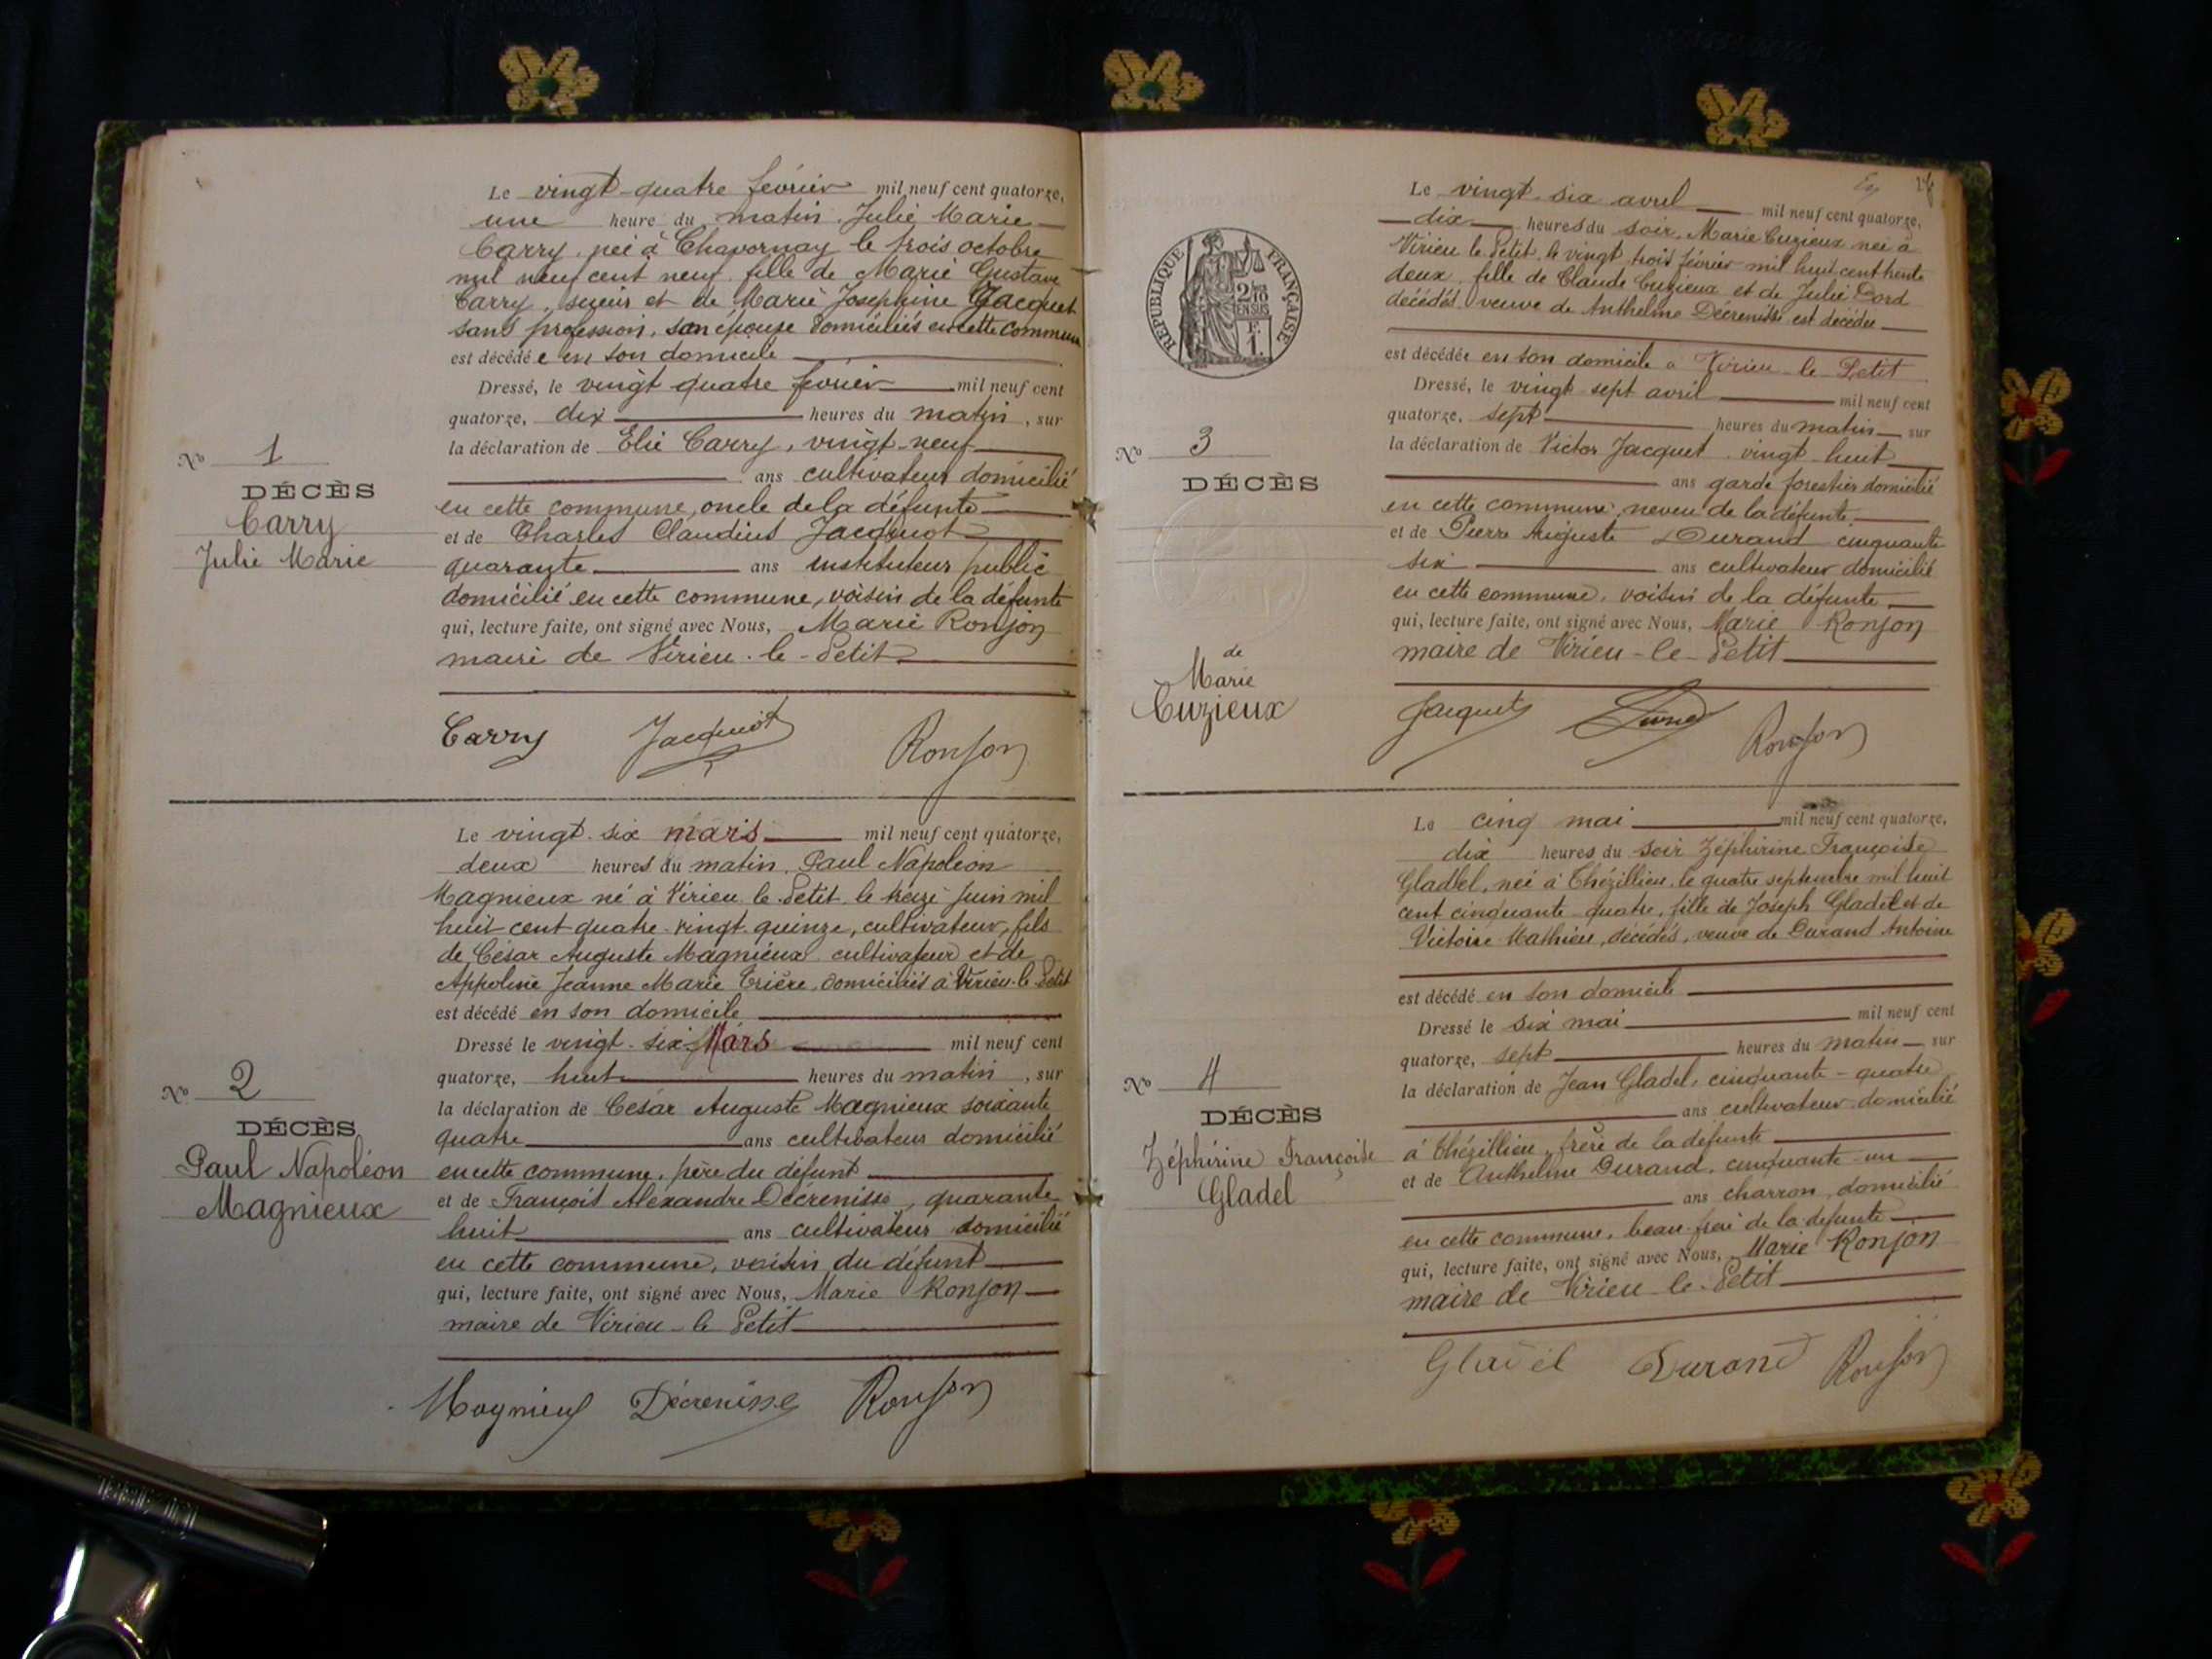 Le vingt-quatre février mil neuf cent quatorze,
une heure du matin, Julie Marie
Carry, née à Chavornay le trois octobre
mil neuf cent neuf, fille de Marie Gustave
Carry, scieur et de Marie Joséphine Jacquet
sans profession, son épouse domiciliés en cette commune
est décédée en son domicile
Dressé, le vingt quatre février mil neuf cent
quatorze, dix heures du matin, sur
la déclaration de Elie Carry, vingt-neuf
ans cultivateur domicilié
en cette commune, oncle de la défunte
et de Charles Claudius Jacquiot
quarante ans instituteur public
domicilié en cette commune, voisin de la défunte
qui, lecture faite, ont signé avec Nous, Marie Ronjon
maire de Virieu-le-Petit
No 1
DÉCÈS
Carry
Julie Marie
Carry Jacquiot Ronjon
Le vingt-six mars mil neuf cent quatorze,
deux heures du matin, Paul Napoléon
Magnieux né à Virieu le Petit, le treize juin mil
huit cent quatre-vingt-quinze, cultivateur, fils
de César Auguste Magnieux cultivateur et de
Appoline Jeanne Marie Trière, domiciliés à Virieu-le-Petit
est décédé en son domicile
Dressé le vingt-six Mars mil neuf cent
quatorze, huit heures du matin, sur
la déclaration de César Auguste Magnieux soixante
quatre ans cultivateur domicilié
en cette commune, père du défunt
et de François Alexandre Décrenisse, quarante
huit ans cultivateur domicilié
en cette commune, voisin du défunt
qui, lecture faite, ont signé avec Nous, Marie Ronjon
maire de Virieu-le Petit
No 2
DÉCÈS
Paul Napoléon
Magnieux
Magnieux Décrenisse Ronjon
Le vingt-six avril mil neuf cent quatorze,
dix heures du soir, Marie Cuzieux née à
Virieu le Petit le vingt trois février mil huit cent trente
deux, fille de Claude Cuzieux et de Julie Dord
décédés veuve de Anthelme Décrenisse est décédée
est décédée en son domicile à Virieu-le Petit
Dressé, le vingt sept avril mil neuf cent
quatorze, sept heures du matin sur
la déclaration de Victor Jacquet vingt huit
ans garde forestier domicilié
en cette commune, neveu de la défunte
et de Pierre Auguste Durand cinquante
six ans cultivateur domicilié
en cette commune, voisin de la défunte
qui, lecture faite, ont signé avec Nous, Marie Ronjon
maire de Virieu-le-Petit
RÉPUBLIQUE FRANÇAISE
2/10
EN SUS
F.
1.
No 3
DÉCÈS
de
Marie
Cuzieux
Jacquet Durand Ronjon
Le cinq mai mil neuf cent quatorze,
dix heures du soir Zéphirine Françoise
Gladel, née à Thézillieu le quatre septembre mil huit
cent cinquante-quatre, fille de Joseph Gladel et de
Victoire Mathieu, décédés, veuve de Durand Antoine
est décédé en son domicile
Dressé le six mai mil neuf cent
quatorze, sept heures du matin, sur
la déclaration de Jean Gladel, cinquante-quatre
ans cultivateur, domicilié
à Thézillieu, frère de la défunte
et de Anthelme Durand, cinquante-un
ans charron, domicilié
en cette commune, beau-frère de la défunte
qui, lecture faite, ont signé avec Nous, Marie Ronjon
maire de Virieu-le-Petit
No 4
DÉCÈS
Zéphirine Françoise
Gladel
Gladel Durand Ronjon